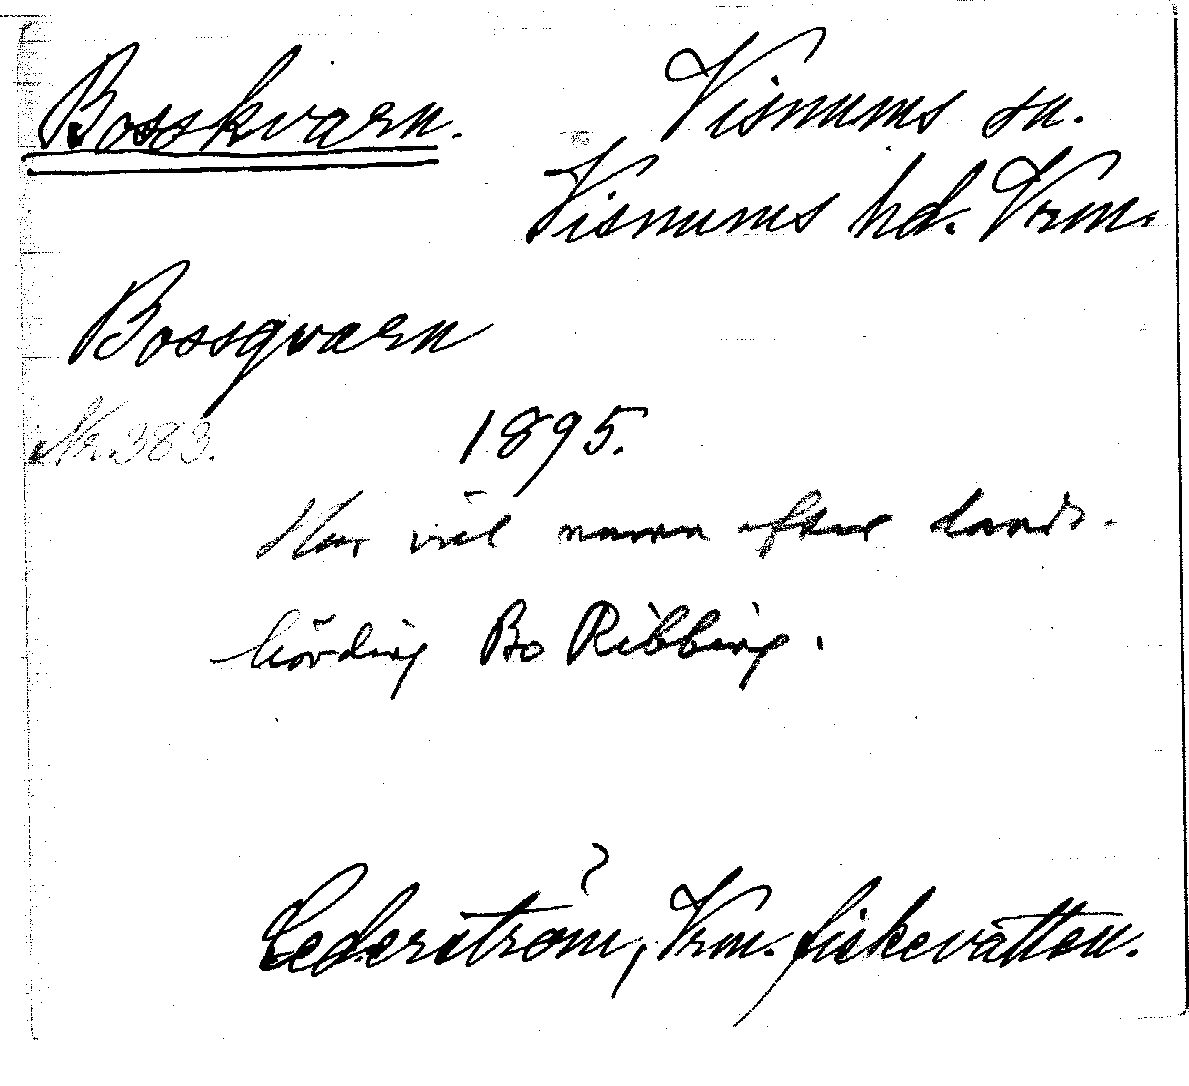 Bosskvarn. Visnums sn.
Visnums hd. Vrm.
Bossqvarn
Nr. 383.
1895.
Har väl namn efter lands-
hörding Bo Ribbing.
Cederström, Vrm. fiskevatten.